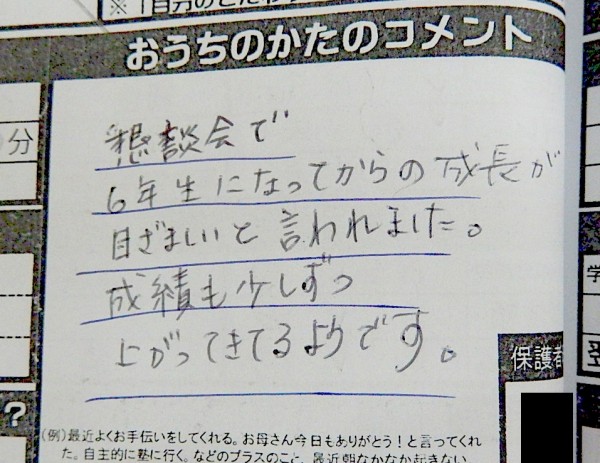 ※「自分のこだわ
おうちのかたのコメント
分
懇談会で
6年生になってからの成長が
目ざましいと言われました。
成績も少しずつ
上がってきてるようです。
学
保護者
?
(例)最近よくお手伝いをしてくれる。お母さん今日もありがとう!と言ってくれ
た。自主的に塾に行く。などのプラスのこと、最近朝なかなか起きない